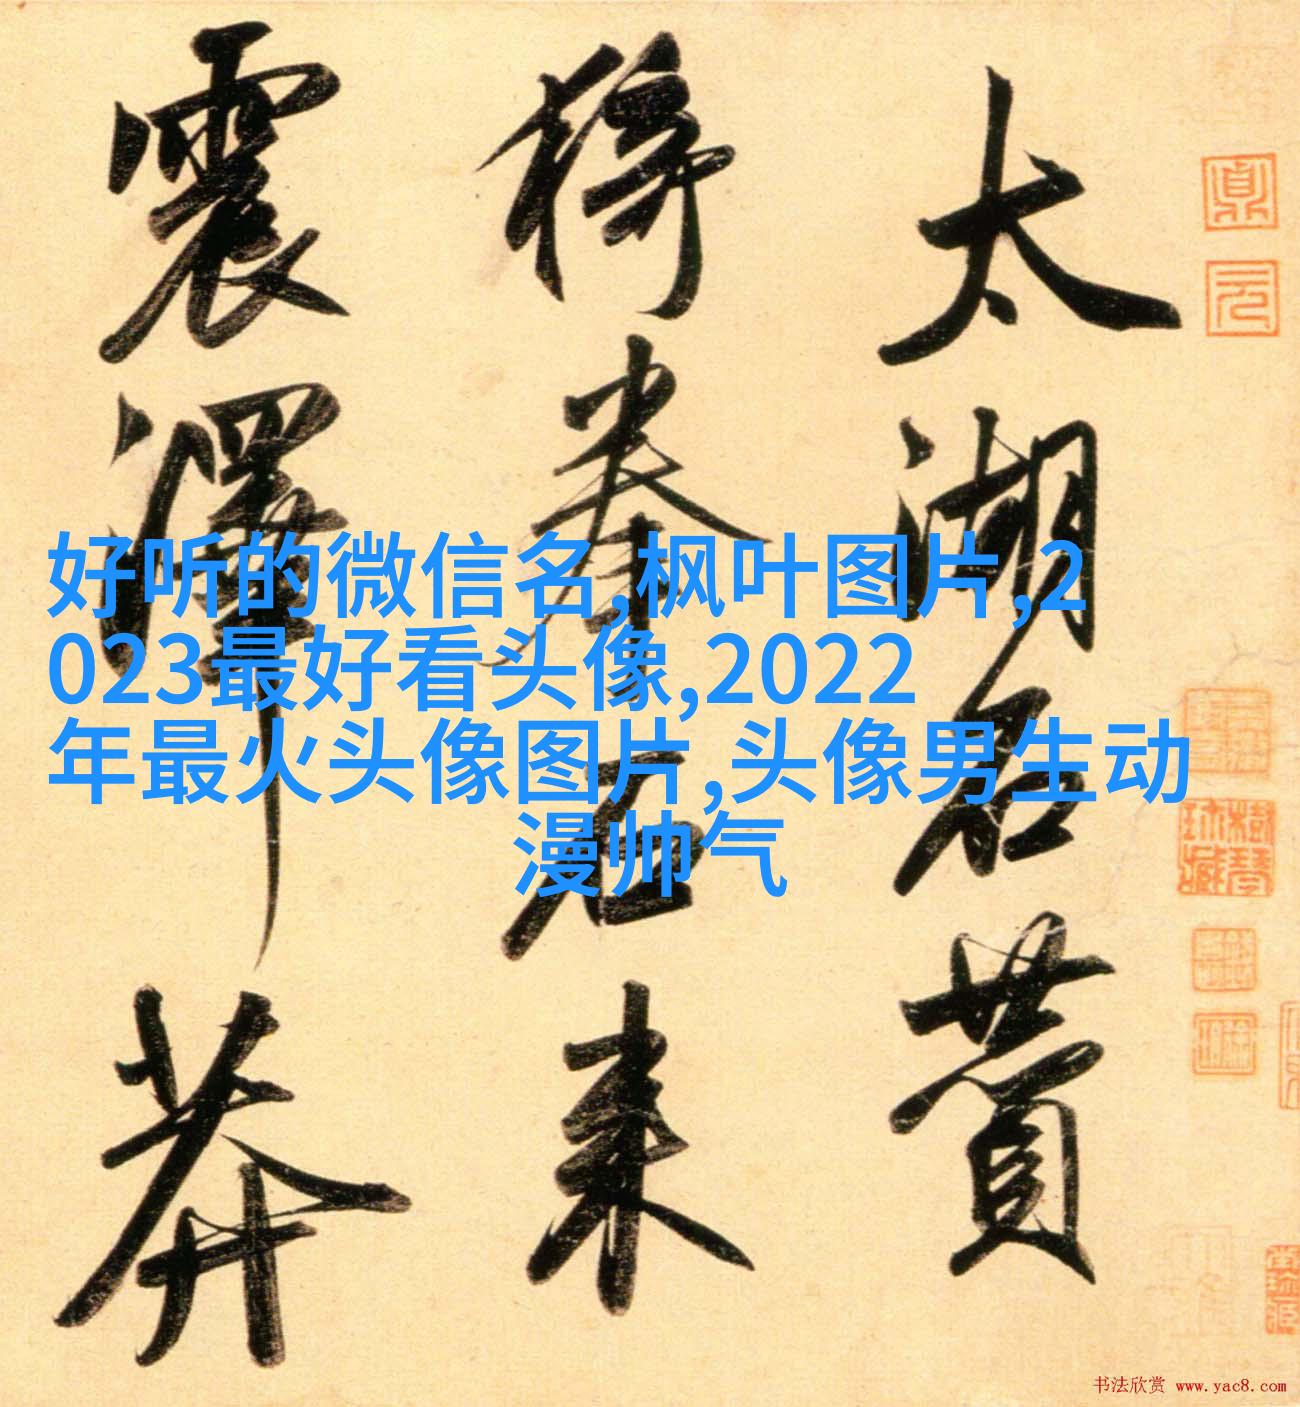 太湖石贊
猗拳石来
震澤莽
好听的微信名,枫叶图片,2
023最好看头像,2022
年最火头像图片,头像男生动
漫帅气
书法欣赏 www.yac8.com